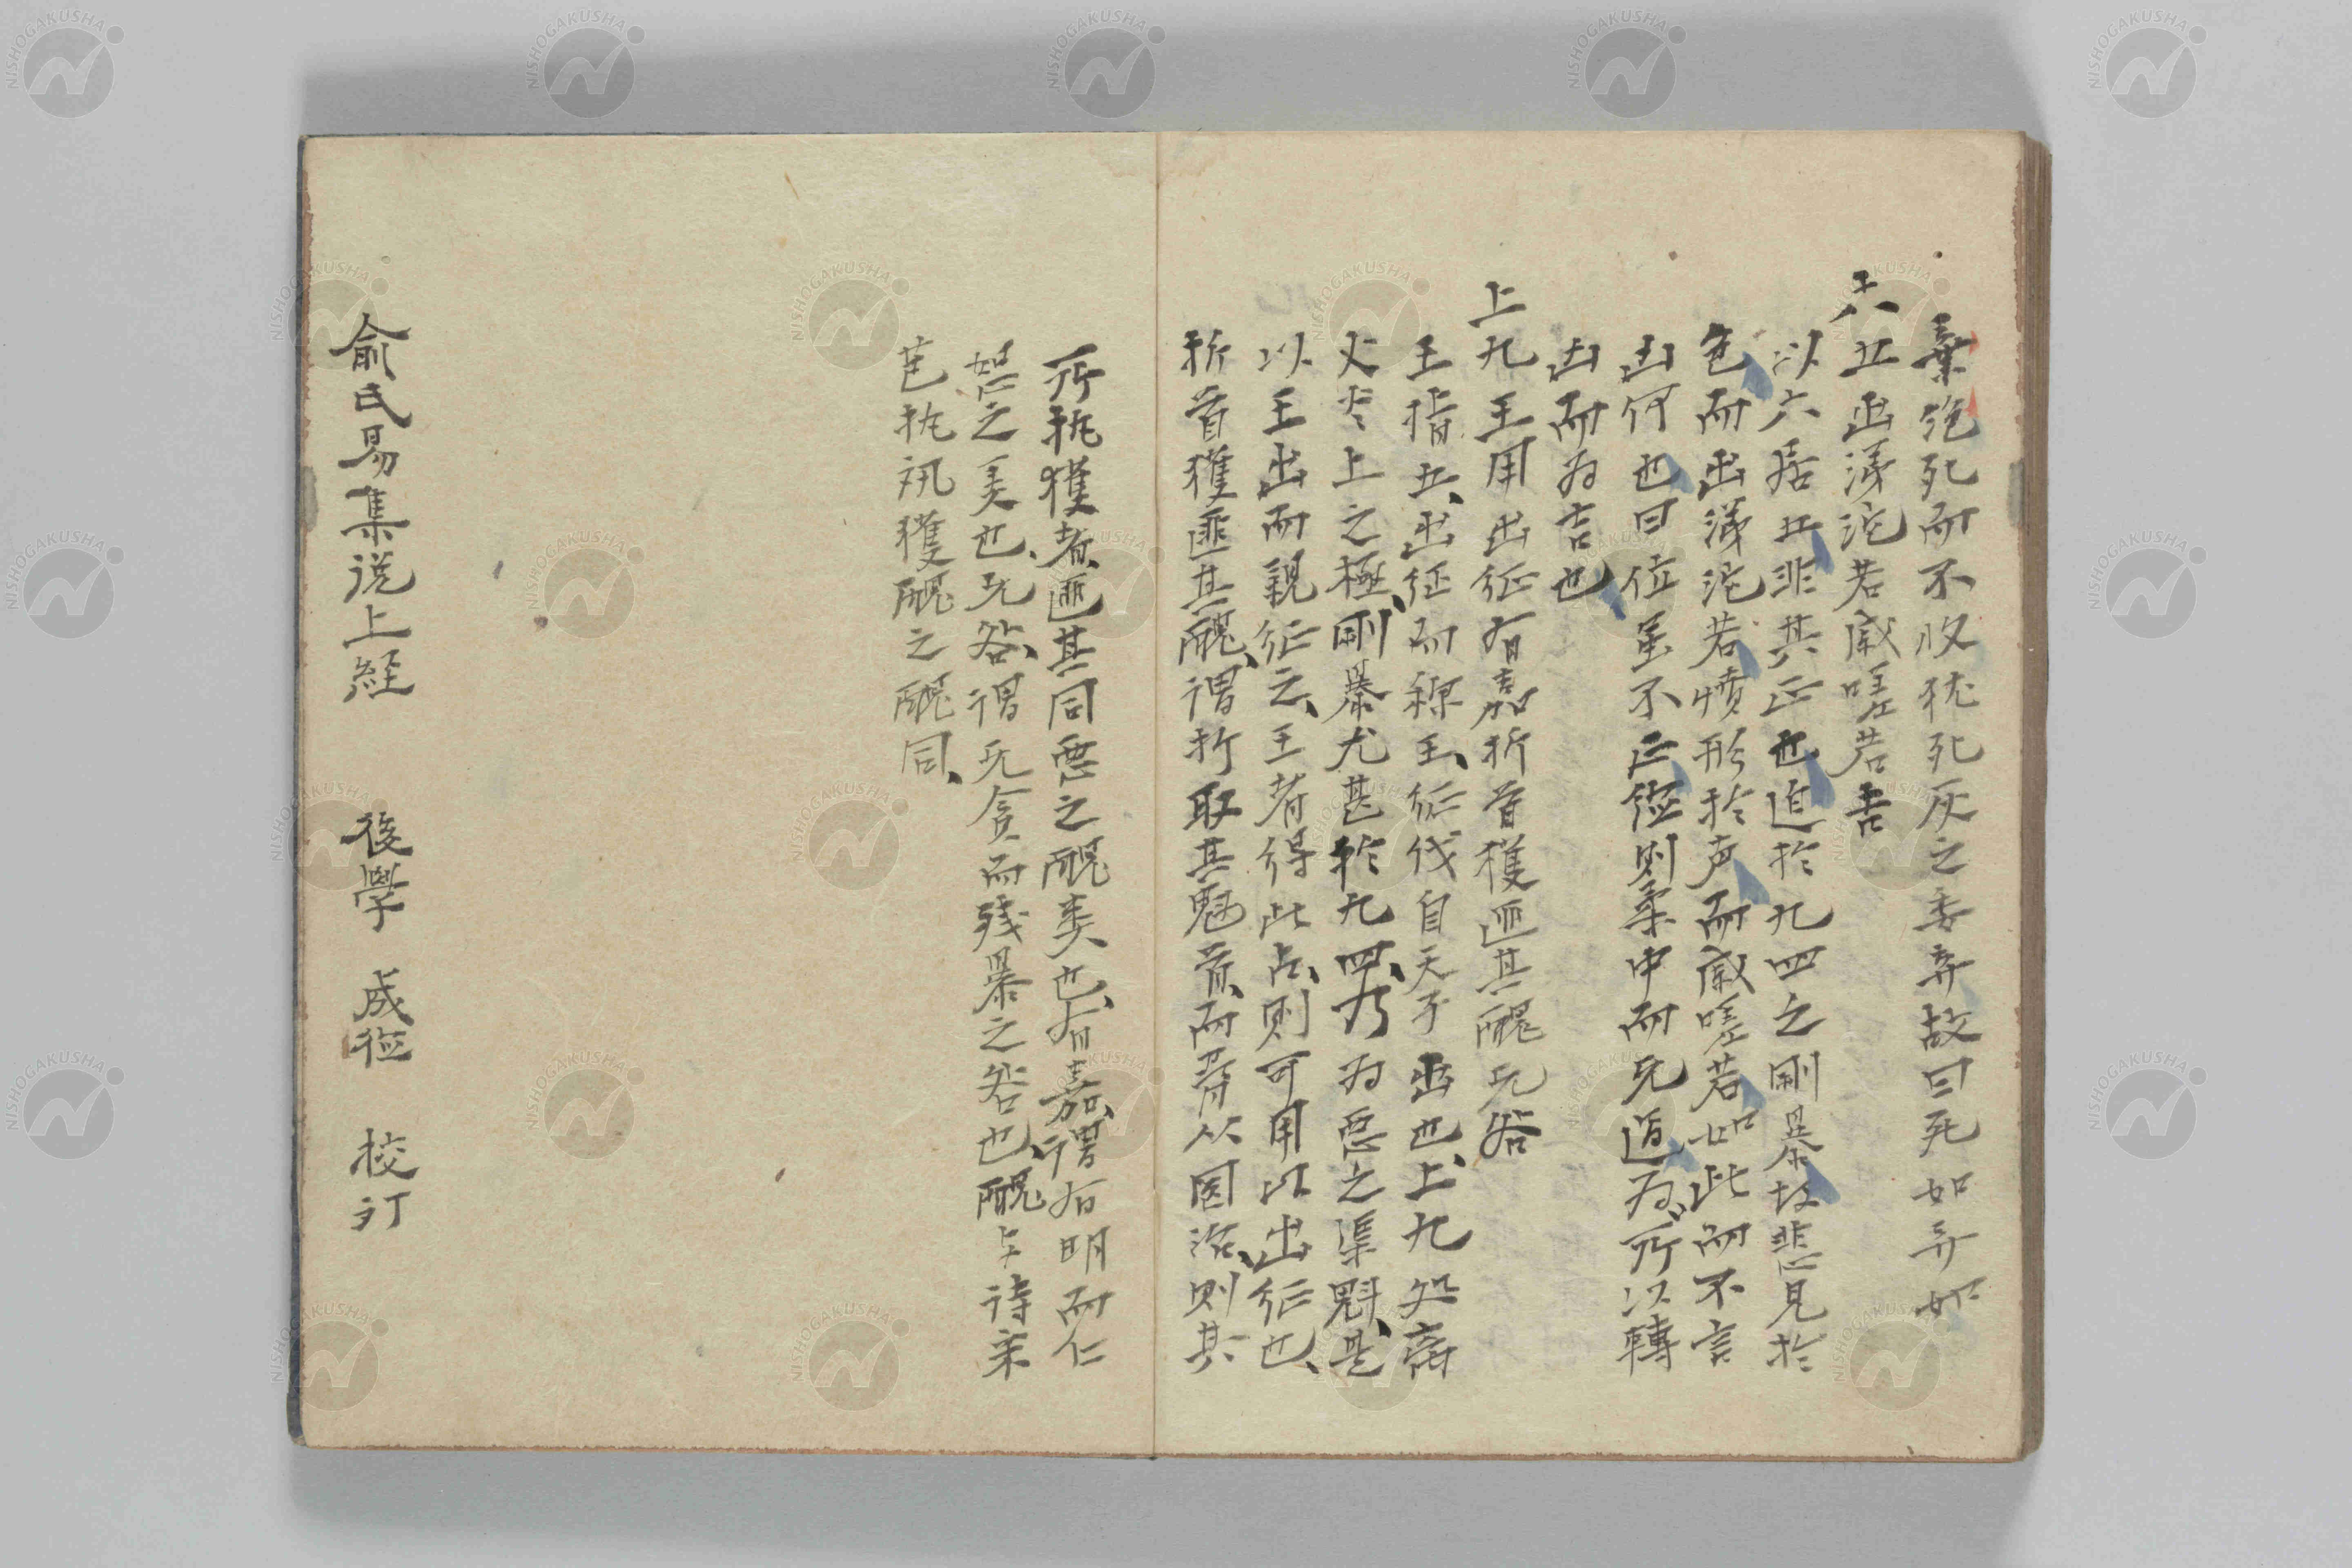 棄絶死而不收犹死灰之委弃故曰死如弃如
六五出涕沱若戚嗟若吉
以六居五非其正也迫於九四之剛暴故悲見於
色而出涕沱若憤形於声而戚嗟若如此而不言
凶何也曰位虽不正德則柔中而无過为所以轉
凶而为吉也
上九王用出征有嘉折首獲匪其醜无咎
王指五出征而称王征伐自天子出也上九処离
火炎上之極剛暴尤甚於九四乃为惡之渠魁是
以王出而親征之王者得此占則可用以出征也
折首獲匪其醜謂折取其魁首而脅从罔治則其
所执獲者匪其同惡之醜类也有嘉謂有明而仁
恕之美也无咎謂无貪而残暴之咎也醜与詩采
芑执訊獲醜之醜同
俞氏易集说上経 後學 成德 校訂
NISHOGAKUSHA